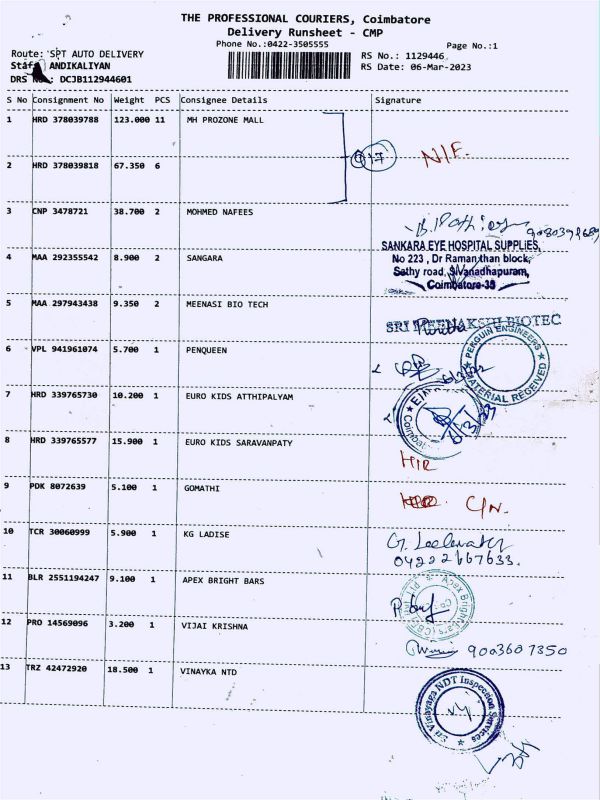 THE PROFESSIONAL COURIERS, Coimbatore
Delivery Runsheet - CMP
Phone No.:0422-3505555
Page No.:1
Route: SPT AUTO DELIVERY
RS No.: 1129446
Staff ANDIKALIYAN
RS Date: 06-Mar-2023
DRS No.: DCJB112944601
S No Consignment No Weight PCS Consignee Details Signature
1 HRD 378039788 123.000 11 MH PROZONE MALL
17 N/F.
2 HRD 378039818 67.350 6
3 CNP 3478721 38.700 2 MOHMED NAFEES
SANKARA EYE HOSPITAL SUPPLIES,
No 223 , Dr Ramanathan block,
4 MAA 292355542 8.900 2 SANGARA
Sathy road, Sivanadhapuram,
Coimbatore-35
5 MAA 297943438 9.350 2 MEENASI BIO TECH
SRI MEENAKSHI BIOTEC
6 VPL 941961074 5.700 1 PENQUEEN
PENGUIN ENGINEERS
MATERIAL RECEIVED
7 HRD 339765730 10.200 1 EURO KIDS ATTHIPALYAM
8 HRD 339765577 15.900 1 EURO KIDS SARAVANPATY
9 PDK 8072639 5.100 1 GOMATHI
10 TCR 30060999 5.900 1 KG LADISE
04222667633.
11 BLR 2551194247 9.100 1 APEX BRIGHT BARS
Apex Bright Bars (CBE)
12 PRO 14569096 3.200 1 VIJAI KRISHNA
9003607350
13 TRZ 42472920 18.500 1 VINAYKA NTD
Sri Vinayaga NDT Inspection Services